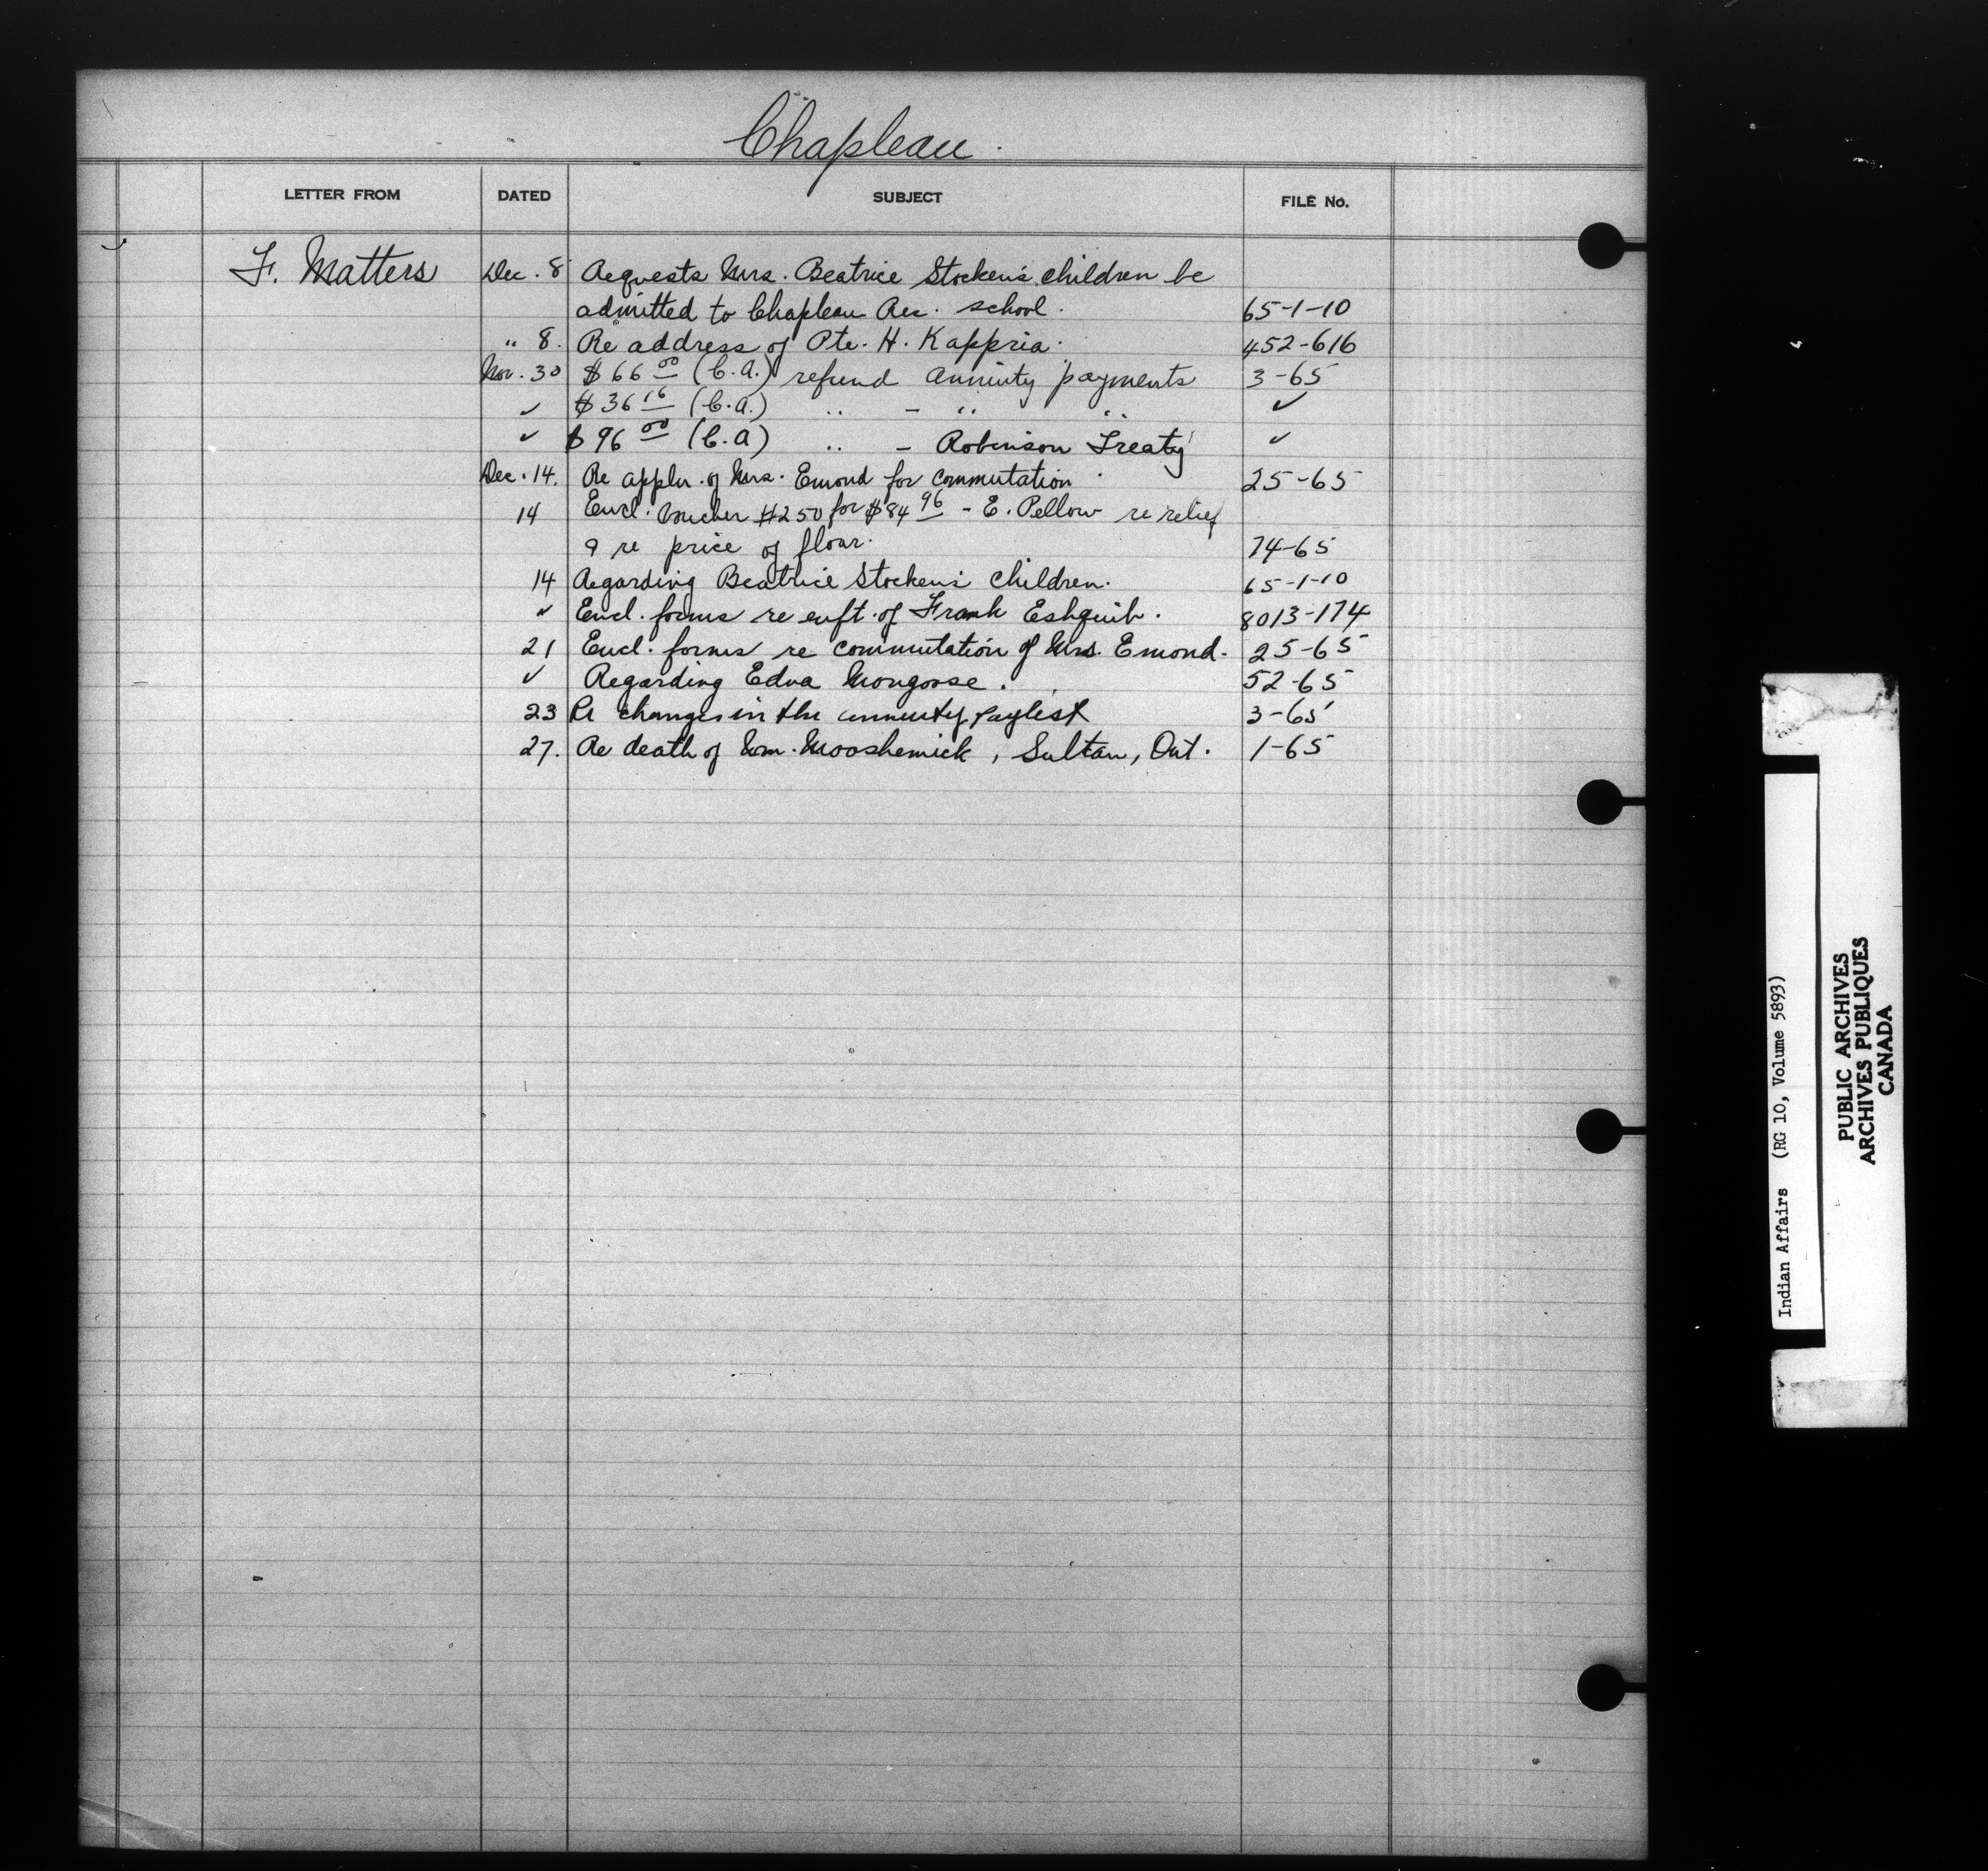 Chapleau.
LETTER FROM DATED SUBJECT FILE No.
F. Matters Dec. 8 Requests Mrs. Beatrice Stocken's children be
admitted to Chapleau Res. school. 65-1-10
" 8. Re address of Pte. H. Kappria. 452-616
Nov. 30 $66 00 (C.A.) refund annuity payments 3-65
✓ $36 16 (C.A.) " - " " ✓
✓ $96 00 (C.A) " - Robinson Treaty ✓
Dec. 14. Re appln. of Mrs. Emond for commutation 25-65
14 Encl. voucher #250 for $84 96 - E. Pellow re relief
& re price of flour. 74-65
14 Regarding Beatrice Stocken's children. 65-1-10
✓ Encl. forms re enft. of Frank Eshquib. 8013-174
21 Encl. forms re commutation of Mrs. Emond. 25-65
✓ Regarding Edna Mongoose. 52-65
23 Re changes in the annuity paylist 3-65
27. Re death of Wm. Mooshemick, Sultan, Ont. 1-65
Indian Affairs (RG 10, Volume 5893)
PUBLIC ARCHIVES
ARCHIVES PUBLIQUES
CANADA